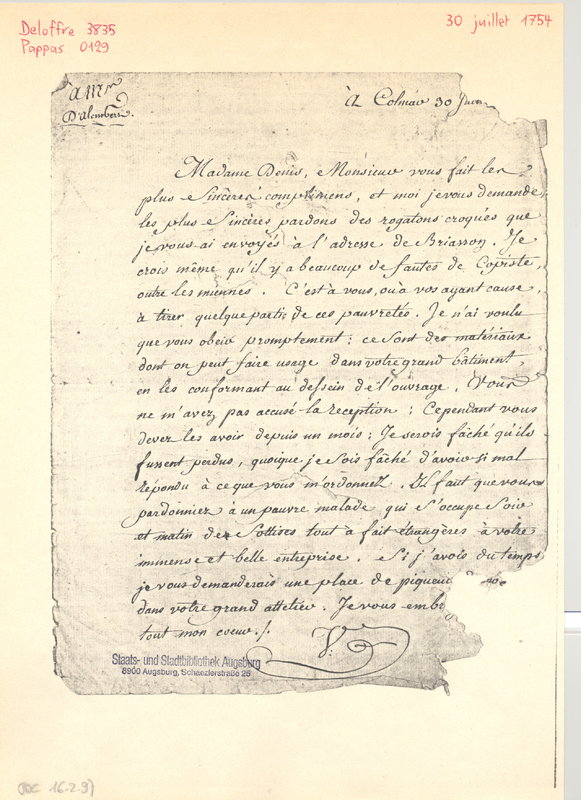 Deloffre 3835
Pappas 0129
30 juillet 1754
a Mr
D'alembert.
A Colmar 30 Juin
Madame Denis, Monsieur vous fait les
plus Sincères complimens, et moi je vous demande
les plus Sincères pardons des rogatons croqués que
je vous ai envoyés à l'adresse de Briasson. Je
crois même qu'il y a beaucoup de fautes de Copiste,
outre les miennes. C'est à vous, ou à vos ayant cause,
à tirer quelque parti de ces pauvretés. Je n'ai voulu
que vous obeir promptement : ce sont des matériaux
dont on peut faire usage dans votre grand bâtiment,
en les conformant au dessein de l'ouvrage. Vous
ne m'avez pas accusé la reception ; Cependant vous
devez les avoir depuis un mois : Je serois fâché qu'ils
fussent perdus, quoique je sois fâché d'avoir si mal
répondu à ce que vous m'ordonnez. Il faut que vous
pardonniez à un pauvre malade qui s'occupe Soir
et matin de Sottises tout à fait étrangères à votre
immense et belle entreprise. Si j'avois du temps
je vous demanderais une place de piqueur
dans votre grand attelier. Je vous emb
tout mon coeur ./.
V:
Staats- und Stadtbibliothek Augsburg
8900 Augsburg, Schaezlerstraße 25
16-2-9)